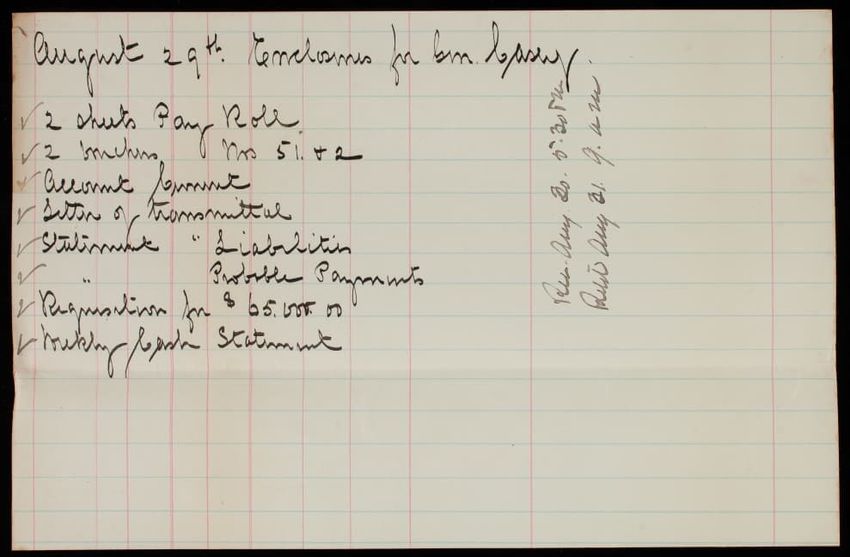 August 29th. Enclosures for Gen. Casey.
✓ 2 sheets Pay Roll
✓ 2 vouchers Nos 51. + 2
✓ Account Current
✓ Letter of transmittal
✓ Statement " Liabilities
✓ " Probable Payments
✓ Requisition for $65.000.00
✓ Weekly Cash Statement
Aug 30. 5.30 P.M.
Aug 31. 9. a m